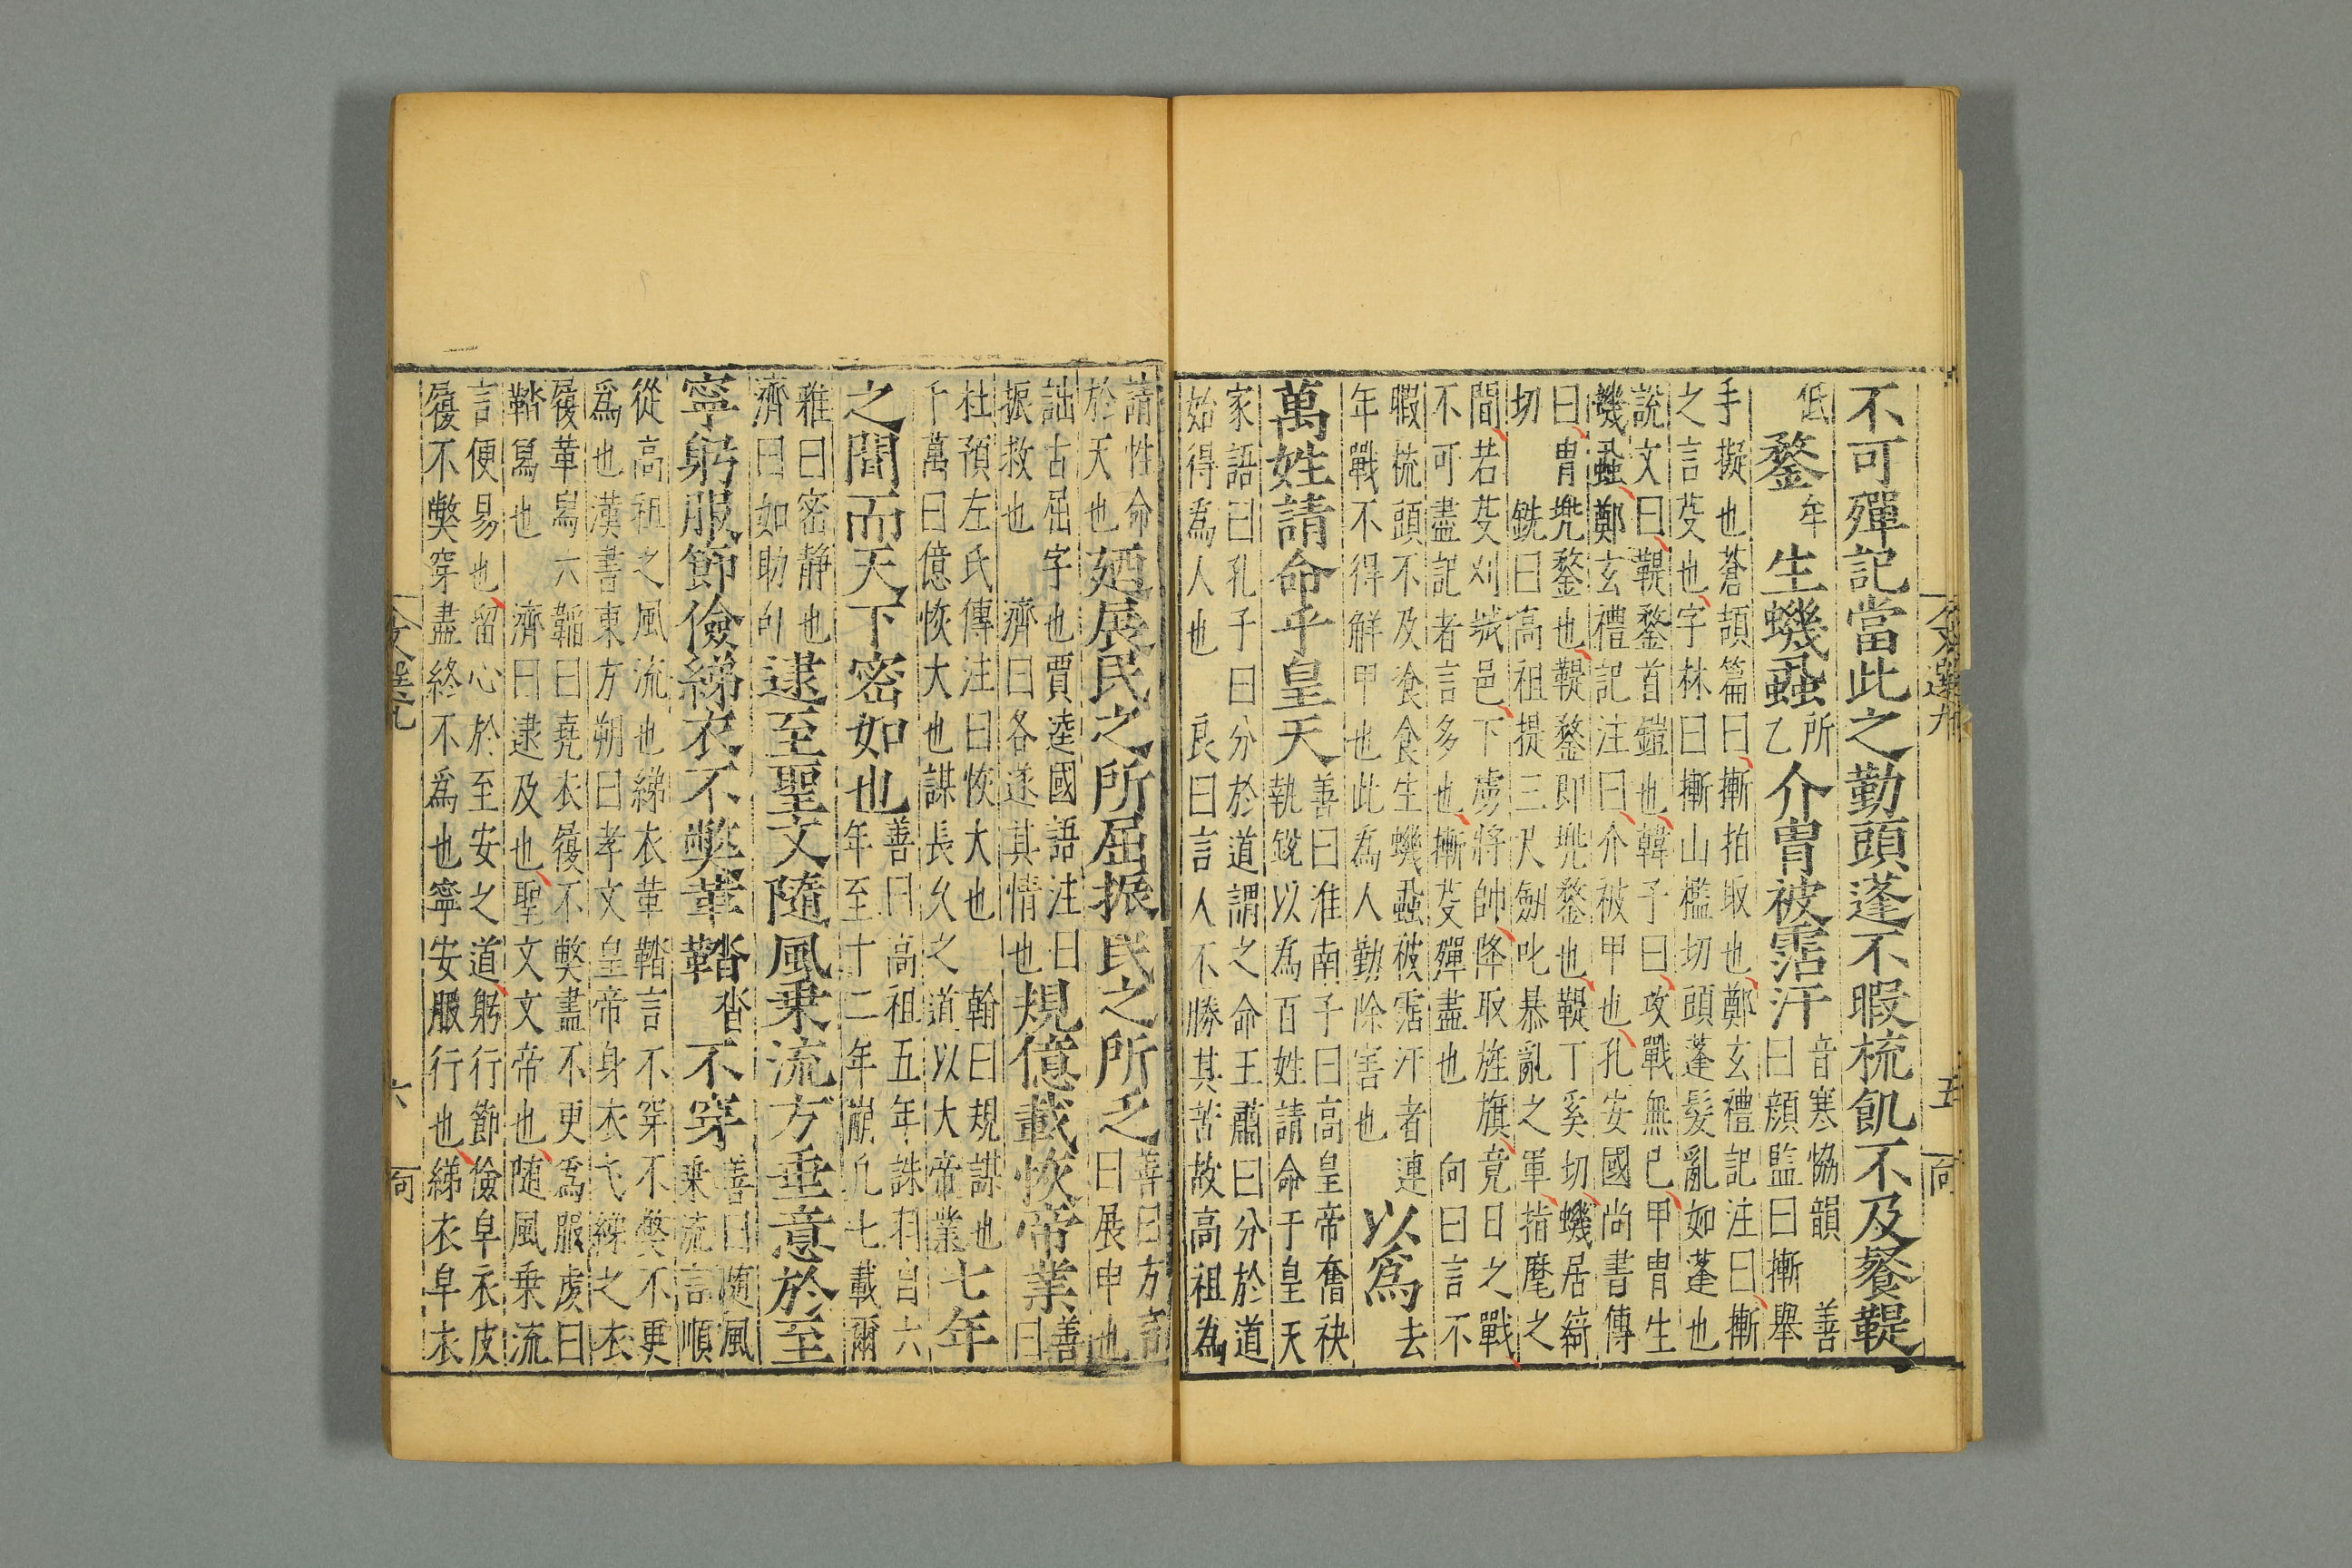 不可殫記當此之勤頭蓬不暇梳飢不及餐鞮
低鍪牟生蟣蝨所乙介胄被霑汗音寒協韻善
曰顔監曰摲舉
手擬也蒼頡篇曰摲拍取也鄭玄禮記注曰摲
之言芟也字林曰摲山檻切頭蓬髮亂如蓬也
説文曰鞮鍪首鎧也韓子曰攻戰無已甲胄生
蟣蝨鄭玄禮記注曰介被甲也孔安國尚書傳
曰胄兠鍪也鞮鍪即兠鍪也鞮丁奚切蟣居綺
切 銑曰高祖提三尺劔叱暴亂之軍指麾之
間若芟刈城邑下虜將帥降取旌旗竟日之戰
不可盡記者言多也摲芟殫盡也 向曰言不
暇梳頭不及飡食生蟣蝨被霑汗者連
年戰不得解甲也此為人勤除害也以爲去
萬姓請命乎皇天善曰淮南子曰高皇帝奮袂
執銳以為百姓請命于皇天
家語曰孔子曰分於道謂之命王肅曰分於道
始得為人也 良曰言人不勝其苦故高祖為
文選九
五
向
請性命
於天也廼展民之所屈振民之所乏善曰方言
曰展申也
詘古屈字也賈逵國語注曰
振救也 濟曰各遂其情也規億載恢帝業善
曰
杜預左氏傳注曰恢大也 翰曰規謀也
千萬曰億恢大也謀長久之道以大帝業七年
之間而天下密如也善曰高祖五年誅羽自六
年至十二年崩凡七載爾
雅曰密静也
濟曰如助句逮至聖文隨風乗流方垂意於至
寧躬服節儉綈衣不弊革鞜沓不穿善曰随風
乗流言順
從高祖之風流也綈衣革鞜言不穿不弊不更
爲也漢書東方朔曰孝文皇帝身衣弋綈之衣
履革舄六韜曰堯衣履不弊盡不更爲服虔曰
鞜舄也 濟曰逮及也聖文文帝也随風乗流
言便易也留心於至安之道躬行節儉皁衣皮
履不弊穿盡終不爲也寧安服行也綈衣皁衣
文選九
六
向